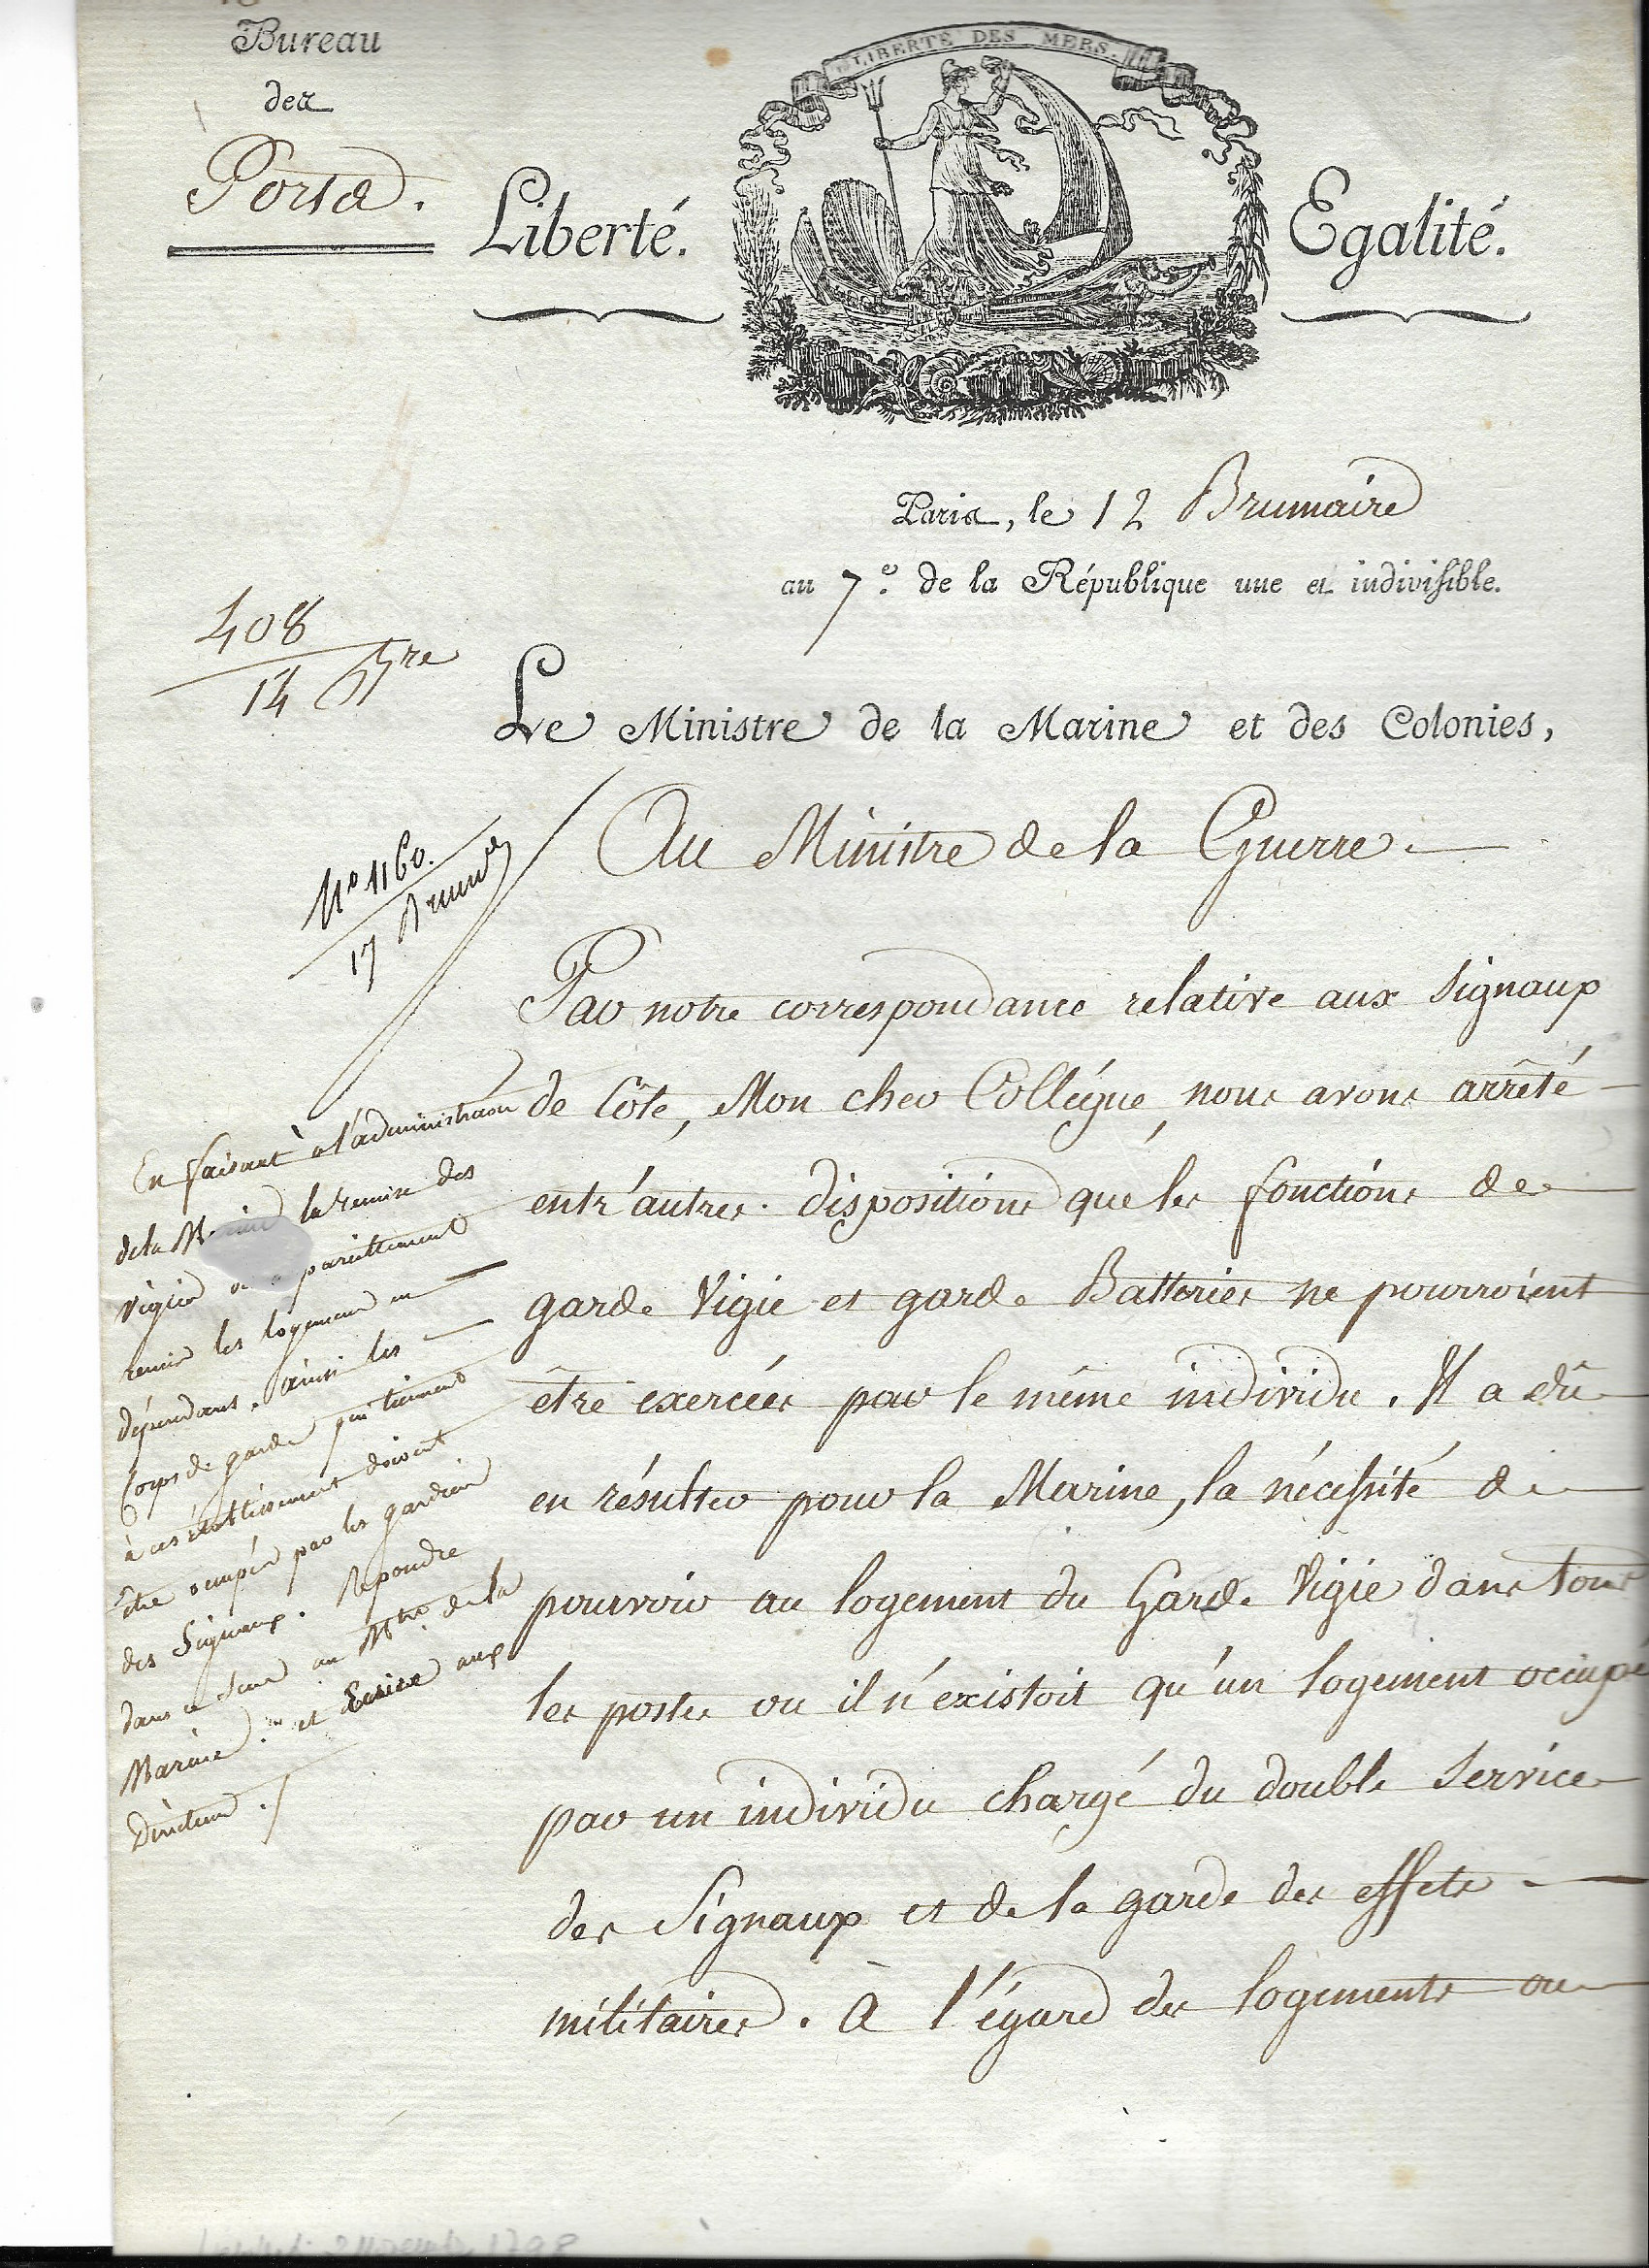 Bureau
des
Ports.
LIBERTÉ DES MERS.
Liberté.
Egalité.
Paris, le 12 Brumaire
an 7.e de la République une et indivisible.
408
14 Bre
Le Ministre de la Marine et des Colonies,
Au Ministre de la Guerre.
No 1160.
17 Brum.e
Par notre correspondance relative aux signaux
de Côte, Mon cher Collégue, nous avons arrêté
entr'autres dispositions que les fonctions de
garde Vigie et garde Batteries ne pourroient
être exercées par le même individu. Il a dû
en résulter pour la Marine, la nécessité de
pourvoir au logement du Garde Vigie dans tous
les postes ou il n'existoit qu'un logement occupé
par un individu chargé du double service
des Signaux et de la garde des effets
militaires. à l'égard des logements ou
En faisant à l'administration
de la Marine la remise des
Vigies
remis les logemens en
dépendans, ainsi les
Corps de garde qui tiennent
à ces établissement doivent
être occupés par les gardiens
des Signaux. Repondre
dans ce sens au Mtre de la
Marine. et Ecrire aux
Directeurs ./
2 Novembre 1798